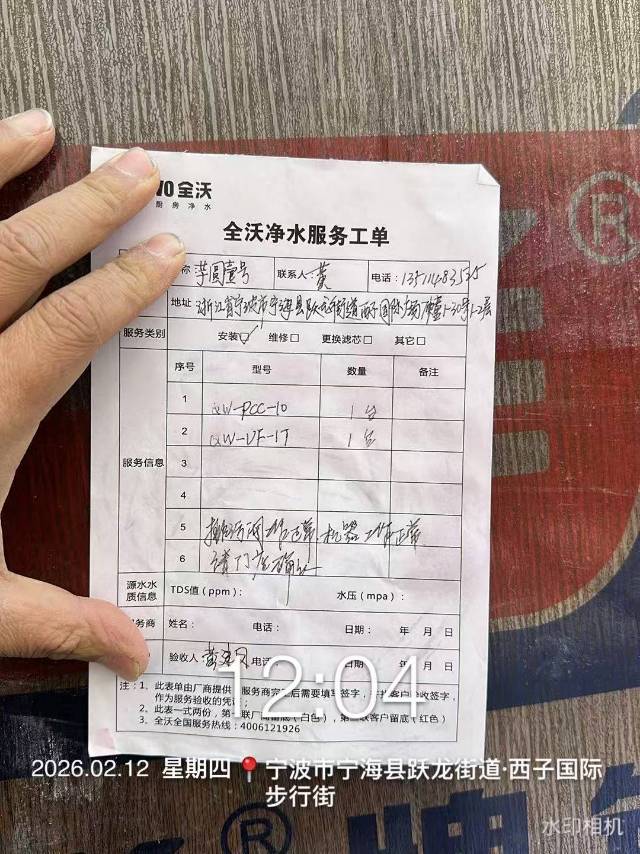 VO全沃
厨房净水
全沃净水服务工单
称 芋圆壹号 联系人: 黄 电话:
地址 浙江省宁波市宁海县跃龙街道西子国际广场 1-30号1-2层
服务类别 安装☑ 维修□ 更换滤芯□ 其它□
序号 型号 数量 备注
服务信息
1 QW-PCC-10 1台
2 QW-UF-1T 1台
3
4
5 工作正常 机器工作正常
6 请门店确认
源水水质信息 TDS值(ppm): 水压(mpa):
务商 姓名: 电话: 日期: 年 月 日
验收人: 电话: 日期: 年 月 日
注:1、此表单由厂商提供,服务商完工后需要填写签字,并找客户验收签字,
作为服务验收的凭证;
2、此表一式两份,第一联厂商留底(白色),第二联客户留底(红色)
3、全沃全国服务热线:4006121926
12:04
2026.02.12 星期四 宁波市宁海县跃龙街道·西子国际
步行街
水印相机
®
®